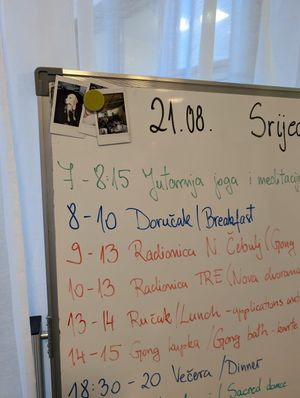 21.08. Srijed
7 - 8:15 Jutarnja joga i meditacija
8 - 10 Doručak / Breakfast
9 - 13 Radionica N. Čebulj (Gong
10 - 13 Radionica TRE (Nova dvorana
13 - 14 Ručak / Lunch - applications and
14 - 15 Gong kupka / Gong bath -
18:30 - 20 Večera / Dinner
/ Sacred dance